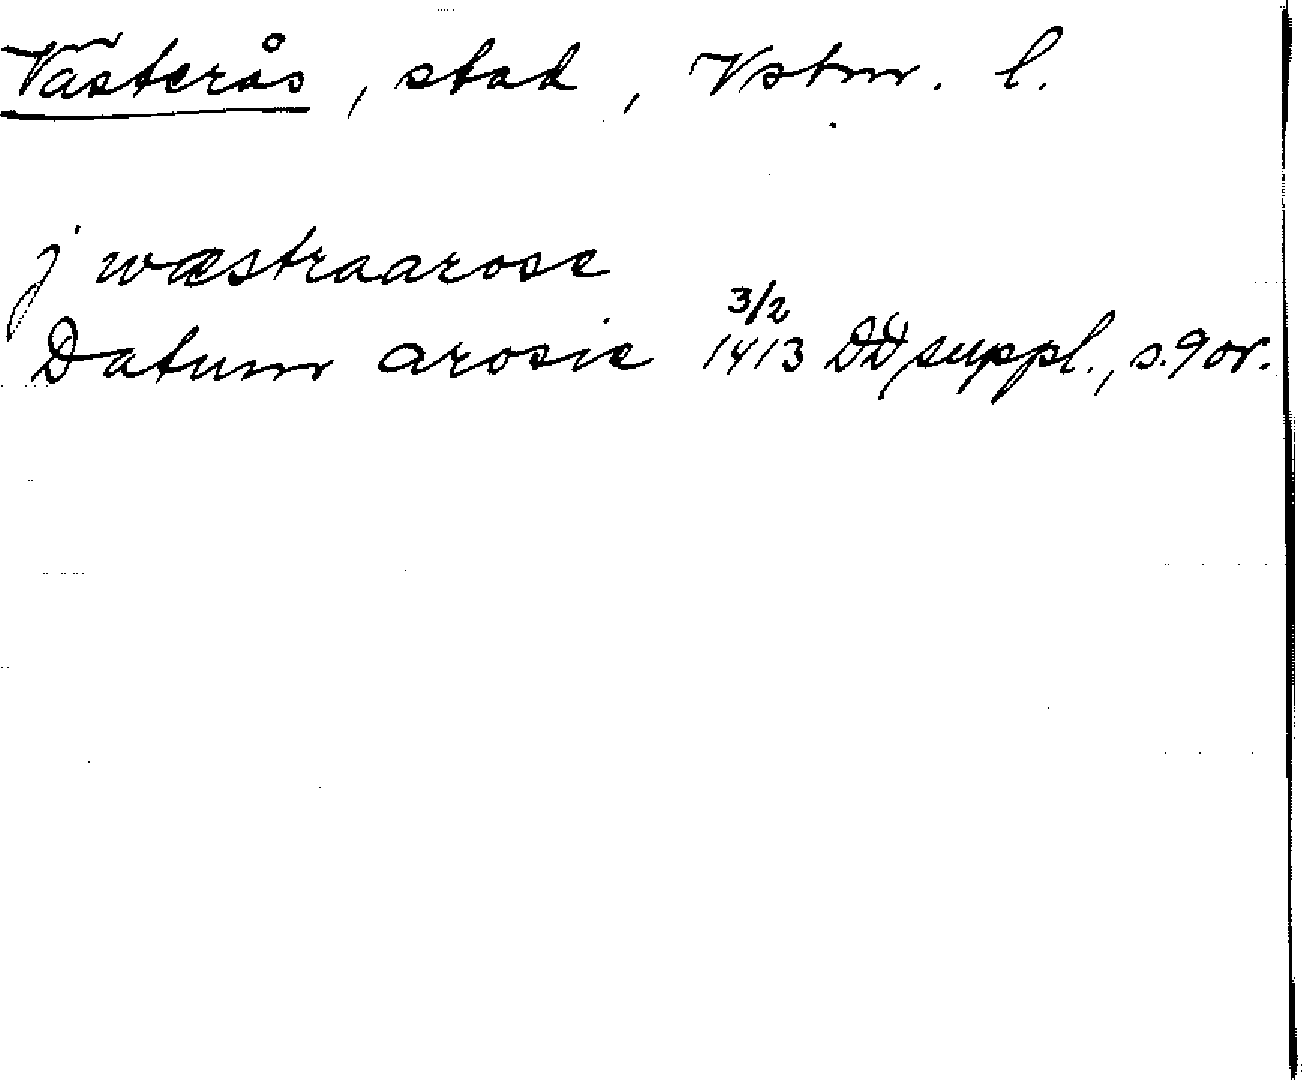 Västerås, stad, Vstm. l.
j wæstraarose
Datum arosie 3/2 1413 DD suppl., s. 9 or.